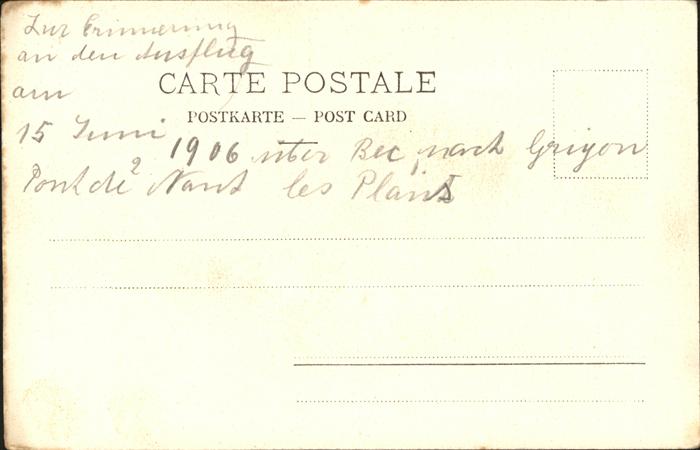 Zur Erinnerung
an den Ausflug
CARTE POSTALE
am
POSTKARTE — POST CARD
15 Juni
1906 über Bex nach Gryon
Pont de Nant les Plans